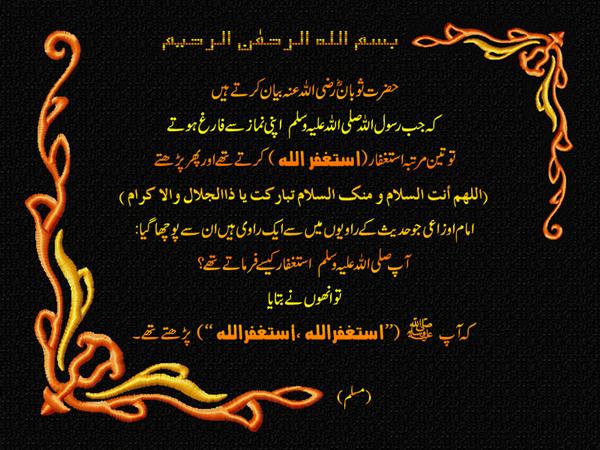 بسم الله الرحمٰن الرحيم
حضرت ثوبانؓ رضی اللہ عنہ بیان کرتے ہیں
کہ جب رسول اللہ صلی اللہ علیہ وسلم اپنی نماز سے فارغ ہوتے
تو تین مرتبہ استغفار (استغفر الله) کرتے تھے اور پھر پڑھتے
(اللهم أنت السلام و منک السلام تبارکت یا ذاالجلال والا کرام)
امام اوزاعی جو حدیث کے راویوں میں سے ایک راوی ہیں ان سے پوچھا گیا:
آپ صلی اللہ علیہ وسلم استغفار کیسے فرماتے تھے؟
تو انھوں نے بتایا
کہ آپ ﷺ (”استغفرالله ،استغفرالله“) پڑھتے تھے۔
(مسلم)